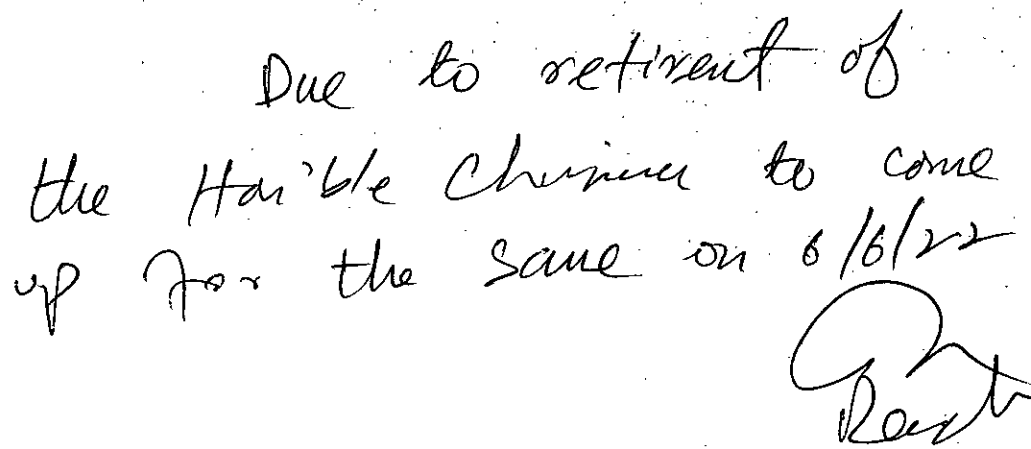 Due to retirent of
the Hon'ble Chairman to come
up for the same on 6/6/22